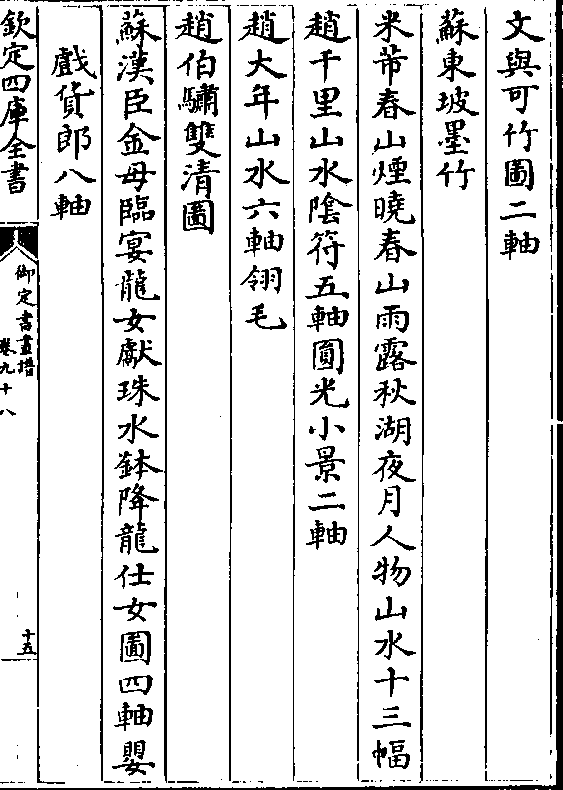 文與可竹圖二軸
蘇東坡墨竹
米芾春山煙曉春山雨露秋湖夜月人物山水十三幅
趙千里山水陰符五軸圓光小景二軸
趙大年山水六軸翎毛
趙伯驌雙清圖
蘇漢臣金母臨宴龍女獻珠水鉢降龍仕女圖四軸嬰
戲貨郎八軸
欽定四庫全書
御定書畫譜
卷九十八
十五